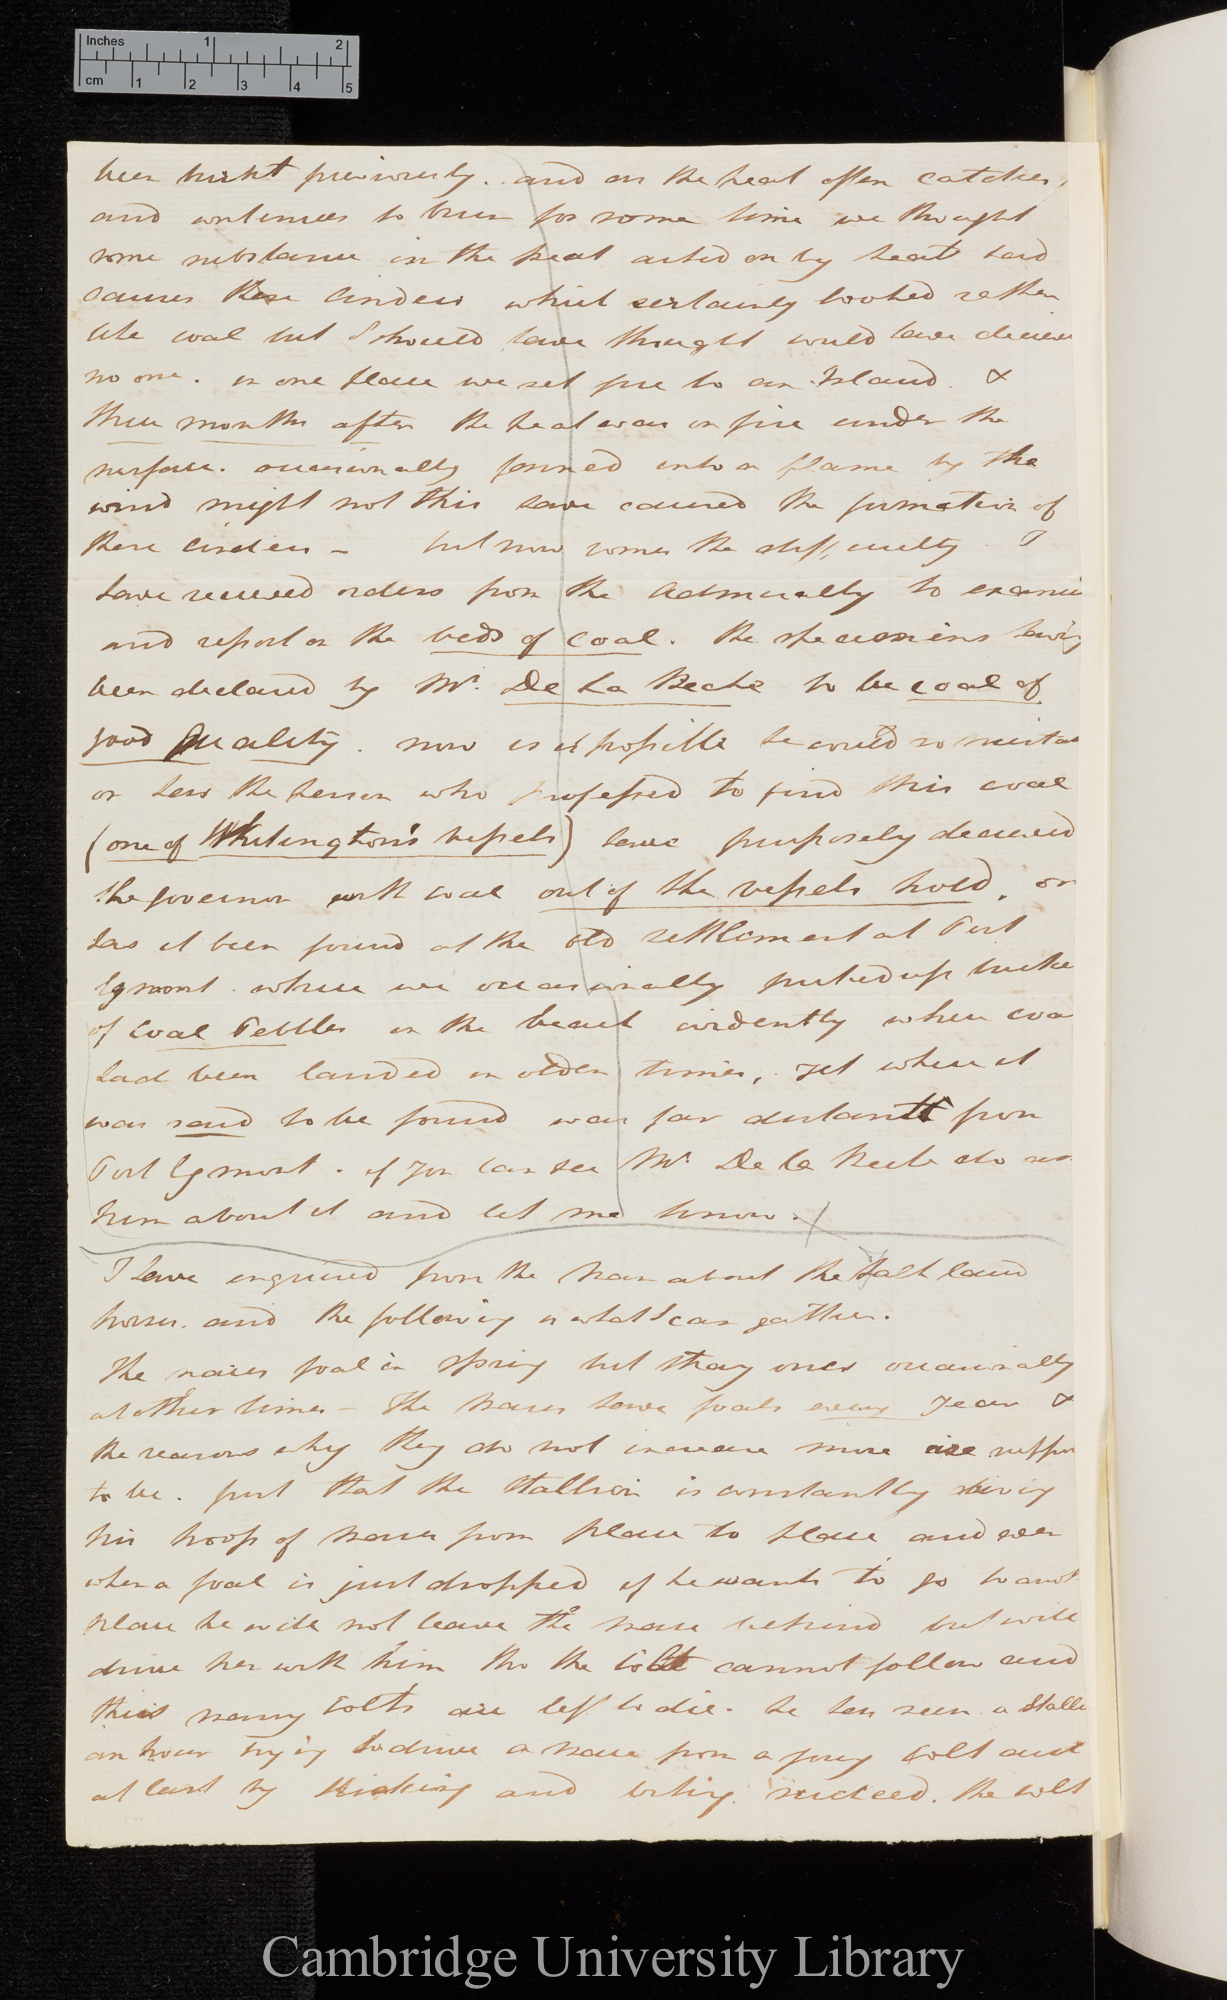 Inches 1 2
cm 1 2 3 4 5
been burnt previously. and as the peat often catches,
and continues to burn for some time we thought
some substance in the peat acted on by heat had
causes these cinders which certainly looked rather
like coal but I should have thought would have deceived
no one. in one place we set fire to an Island &
three months after the peat was on fire under the
surface. occasionally fanned into a flame by the
wind might not this have caused the formation of
these cinders – but now comes the difficulty I
have received orders from the Admiralty to examine
and report on the beds of coal. the specimens having
been declared by Mr. De La Beche to be coal of
good quality. now is it possible he could so mistake
or has the person who professed to find this coal
(one of Whitington's vessels) have purposely deceived
the governor with coal out of the vessels hold, or
has it been found at the old settlement at Port
Egmont where we occasionally picked up
of coal Pebbles on the beach evidently where coal
had been landed in olden times, yet where it
was said to be found was far distant from
Port Egmont. if you can see Mr De la Beche do
him about it and let me know.
I have enquired from the man about the Falkland
horses. and the following is what I can gather.
The mares foal in Spring but stray ones occasionally
at other times – the mares have foals every year &
the reasons why they do not increase more are suppose
to be. first that the Stallion is constantly driving
his troop of mares from place to place and even
when a foal is just dropped if he wants to go to another
place he will not leave the mare behind but will
drive her with him tho the colt cannot follow and
thus many colts are left to die. he has seen a Stallion
an hour trying to drive a mare from a young colt and
at last by kicking and biting succeed. the colt
Cambridge University Library